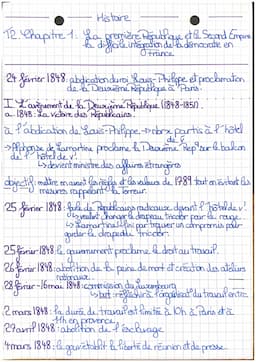 Histoire
T2 Chapitre 1 : La première République et le Second Empire
la difficile intégration de la démocratie en
France
24 février 1848 : abdication du roi Louis-Philippe et proclamation
de la Deuxième République à Paris.
I L'avènement de la Deuxième République (1848-1851).
a. 1848 : La victoire des Républicains.
à l'abdication de Louis-Philippe → deux partis à l'hôtel
de v.
→ Alphonse de Lamartine proclame la Deuxième Rep° sur le balcon
de l'hôtel de v.
↳ devient ministre des affaires étrangères
objectif : mettre en avant les règles et les valeurs de 1789 tout en évitant les
mesures rappelant la terreur.
25 février 1848 : foule de républicains radicaux devant l'hôtel de v.
↳ veulent changer le drapeau tricolor par le rouge.
↳ Lamartine fini par trouver un compromis pour
garder le drapeau tricolor.
25 février 1848 : le gouvernement proclame le droit au travail.
26 février 1848 : abolition de la peine de mort et création des ateliers
nationaux.
28 février - 16 mai 1848 : commission du Luxembourg
↳ but : réfléchir à l'organisa° du travail entre
2 mars 1848 : la durée du travail est limité à 10h à Paris et à
11h en province.
27 avril 1848 : abolition de l'esclavage
4 mars 1848 : le gouv établit la liberté de réunion et de presse.